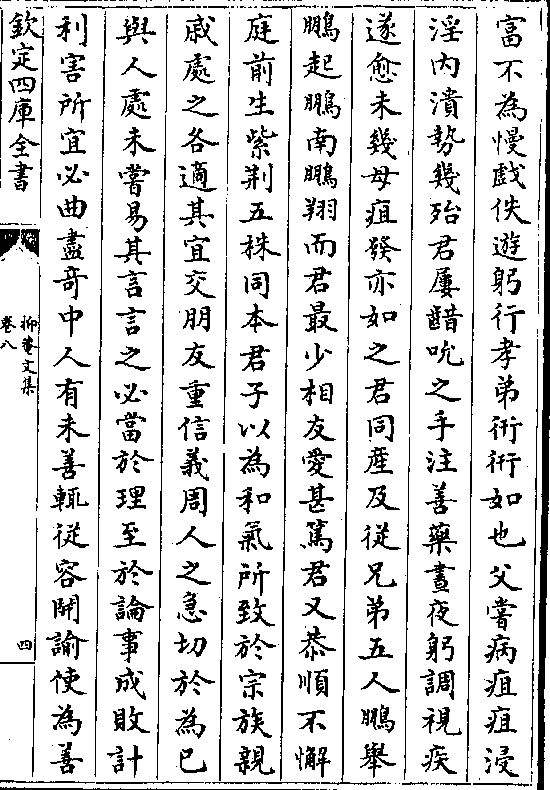 富不為慢戲佚遊躬行孝弟衎衎如也父嘗病疽疽浸
淫内潰勢幾殆君屢齰吮之手注善藥晝夜躬調視疾
遂愈未幾母疽發亦如之君同産及從兄弟五人鵬舉
鵬起鵬南鵬翔而君最少相友愛甚篤君又恭順不懈
庭前生紫荆五株同本君子以為和氣所致於宗族親
戚處之各適其宜交朋友重信義周人之急切於為已
與人處未嘗易其言言之必當於理至於論事成敗計
利害所宜必曲盡竒中人有未善輒從容開諭使為善
欽定四庫全書
抑菴文集
卷八
四